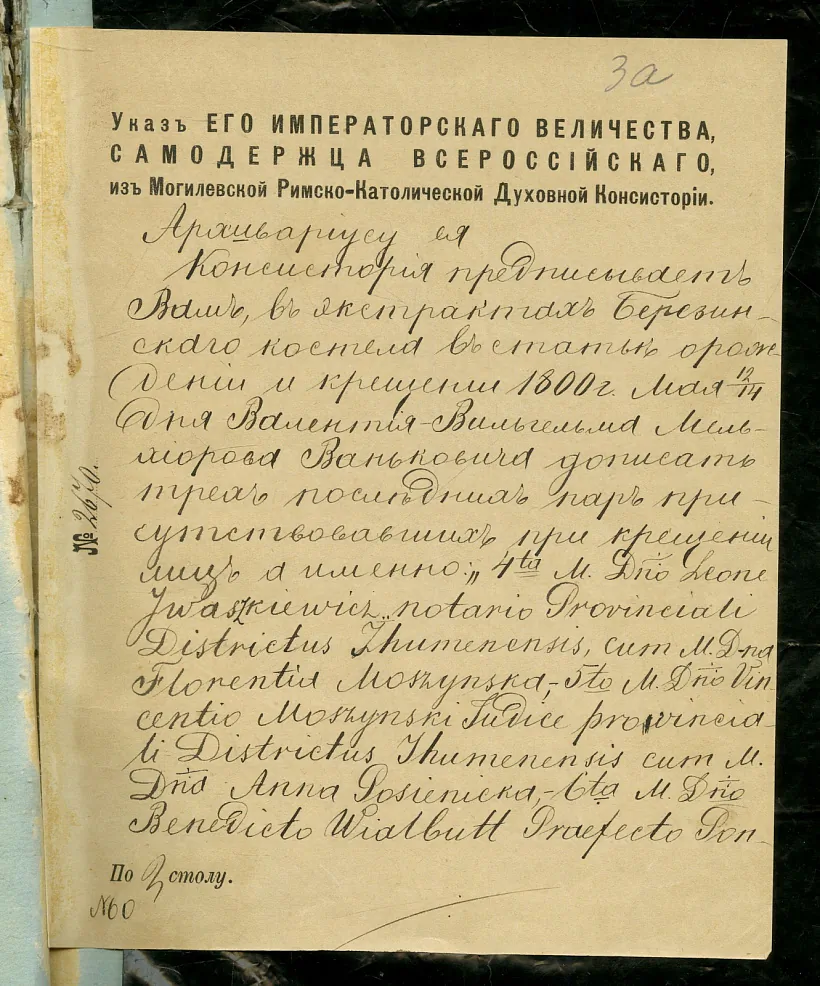 3а
Указъ ЕГО ИМПЕРАТОРСКАГО ВЕЛИЧЕСТВА,
САМОДЕРЖЦА ВСЕРОССІЙСКАГО,
изъ Могилевской Римско-Католической Духовной Консисторіи.
Архиваріусу ея
Консисторія предписываетъ
Вамъ, въ экстрактахъ Березин-
скаго костела въ статьѣ о рож-
деніи и крещеніи 1800 г. Мая 12/14
дня Валентія-Вильгельма Мель-
хіорова Ваньковича дописать
трехъ послѣднихъ паръ при-
сутствовавшихъ при крещеніи
лицъ а именно: „4ta M. Dńo Leone
Jwaszkiewicz notario Provinciali
Districtus Jhumenensis, cum M. D-na
Florentia Moszynska,- 5to M. Dńo Vin-
centio Moszynski Judice provincia-
li Districtus Jhumenensis cum M.
Dńa Anna Osienicka,- 6ta M. Dńo
Benedicto Wialbutt Praefecto Pon-
№ 2670.
По 2 столу.
№60